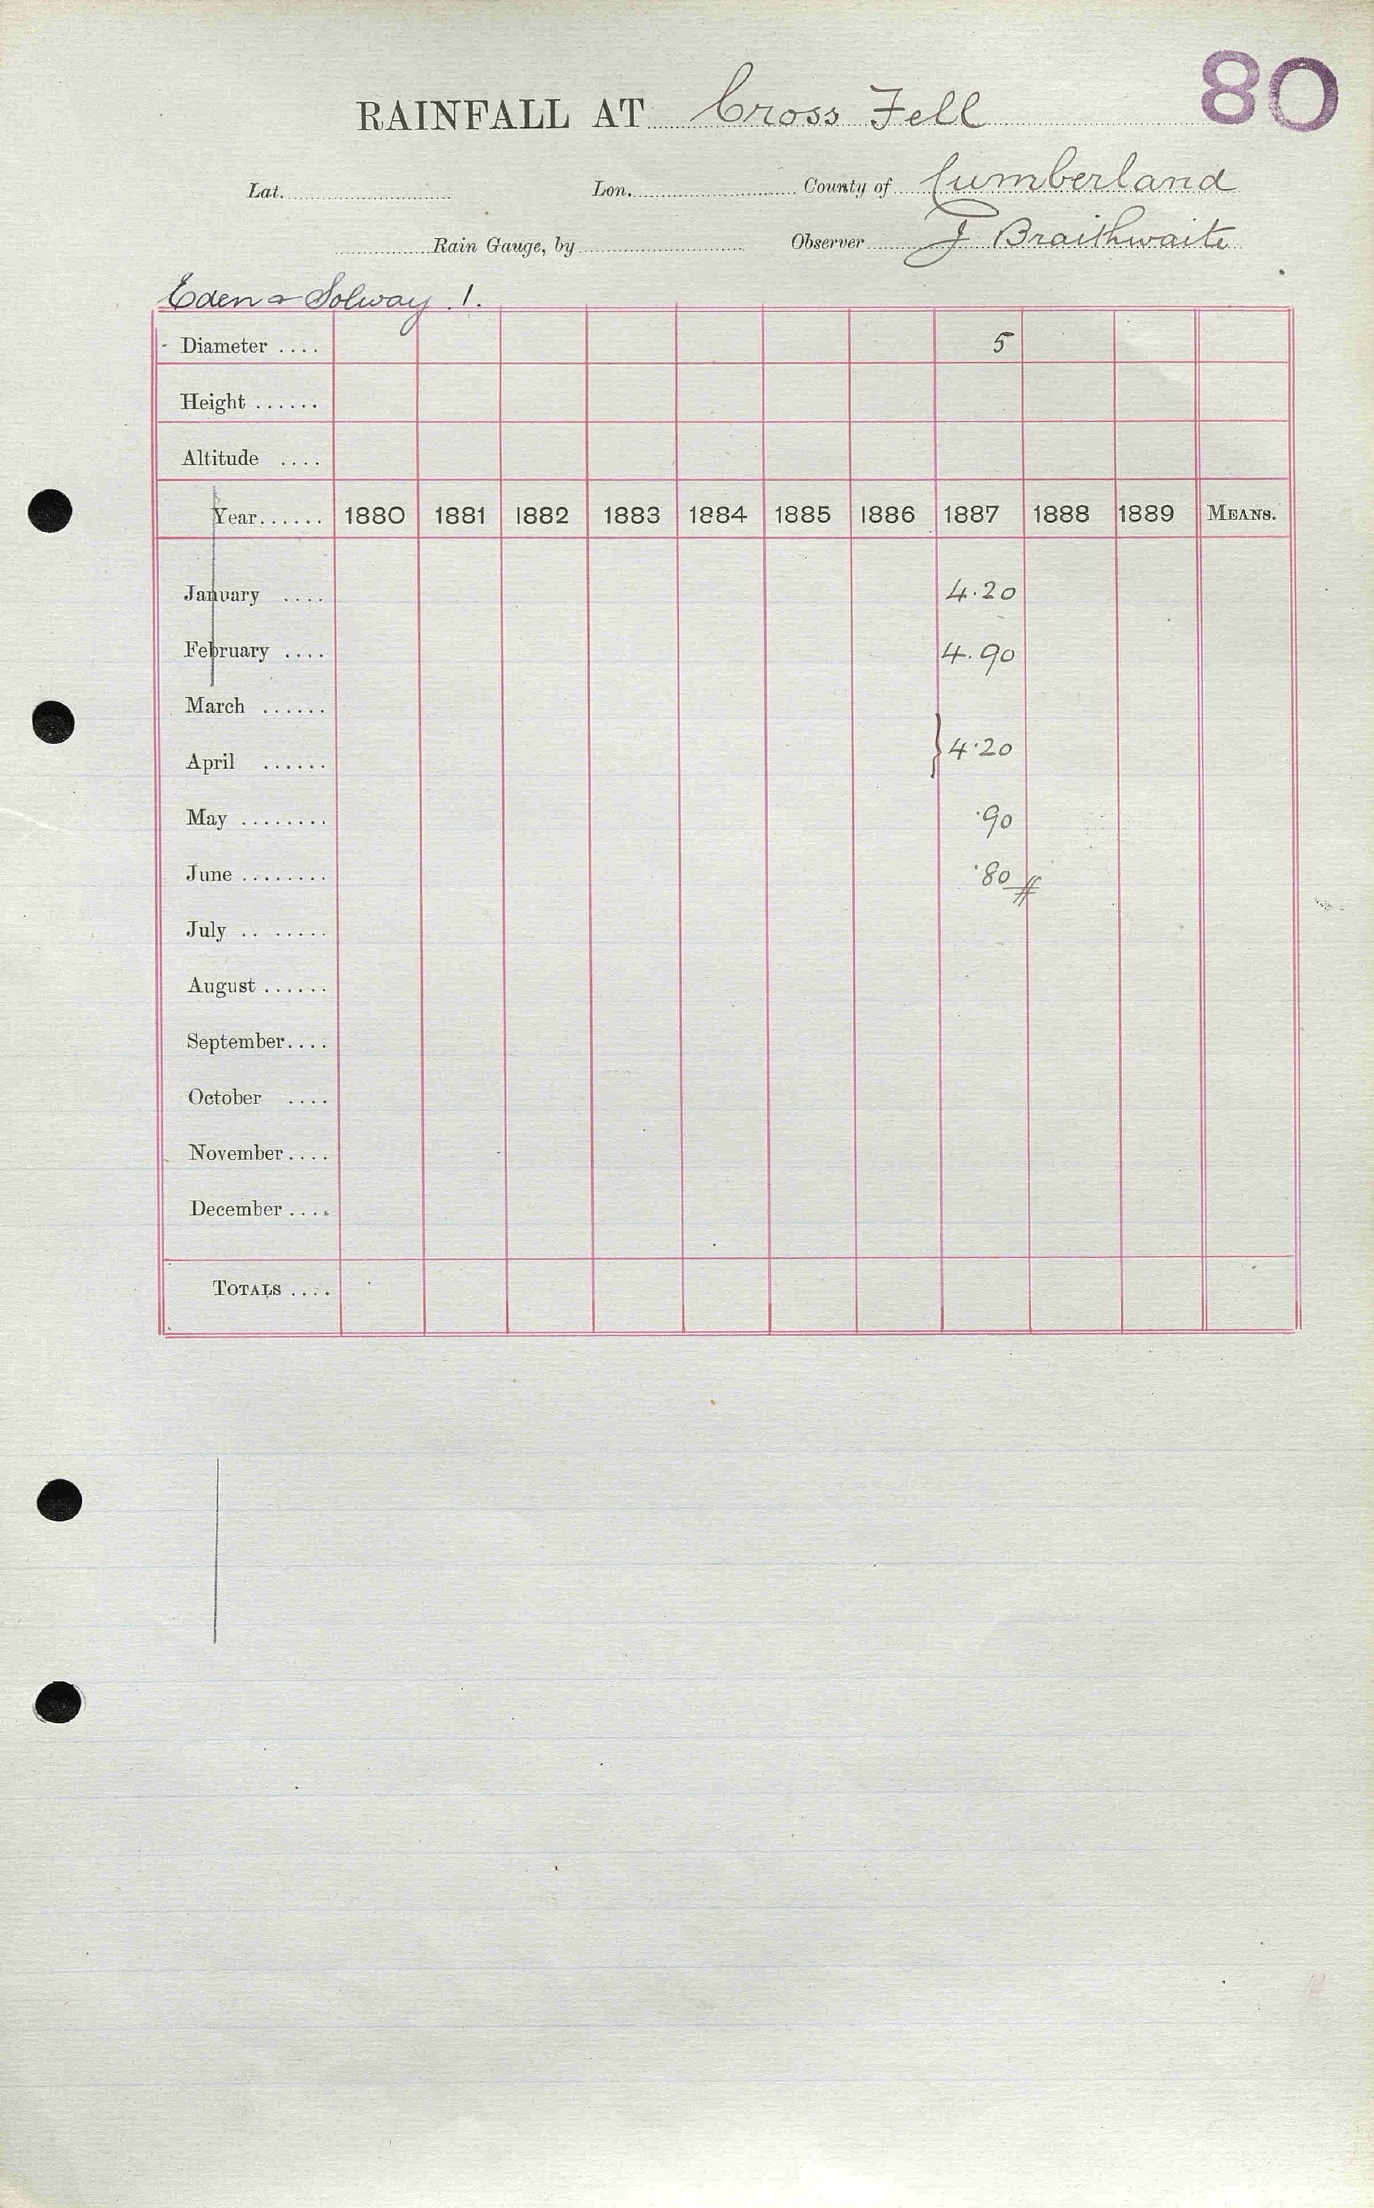 80
RAINFALL AT Cross Fell
Lat. Lon. County of Cumberland
Rain Gauge, by Observer J Braithwaite
Eden & Solway 1.
Diameter .... 5
Height ......
Altitude ....
Year...... 1880 1881 1882 1883 1884 1885 1886 1887 1888 1889 MEANS.
January .... 4.20
February .... 4.90
March ......
April ...... } 4.20
May ........ .90
June ........ .80
July .. ......
August ......
September....
October ....
November....
December ....
TOTALS ....